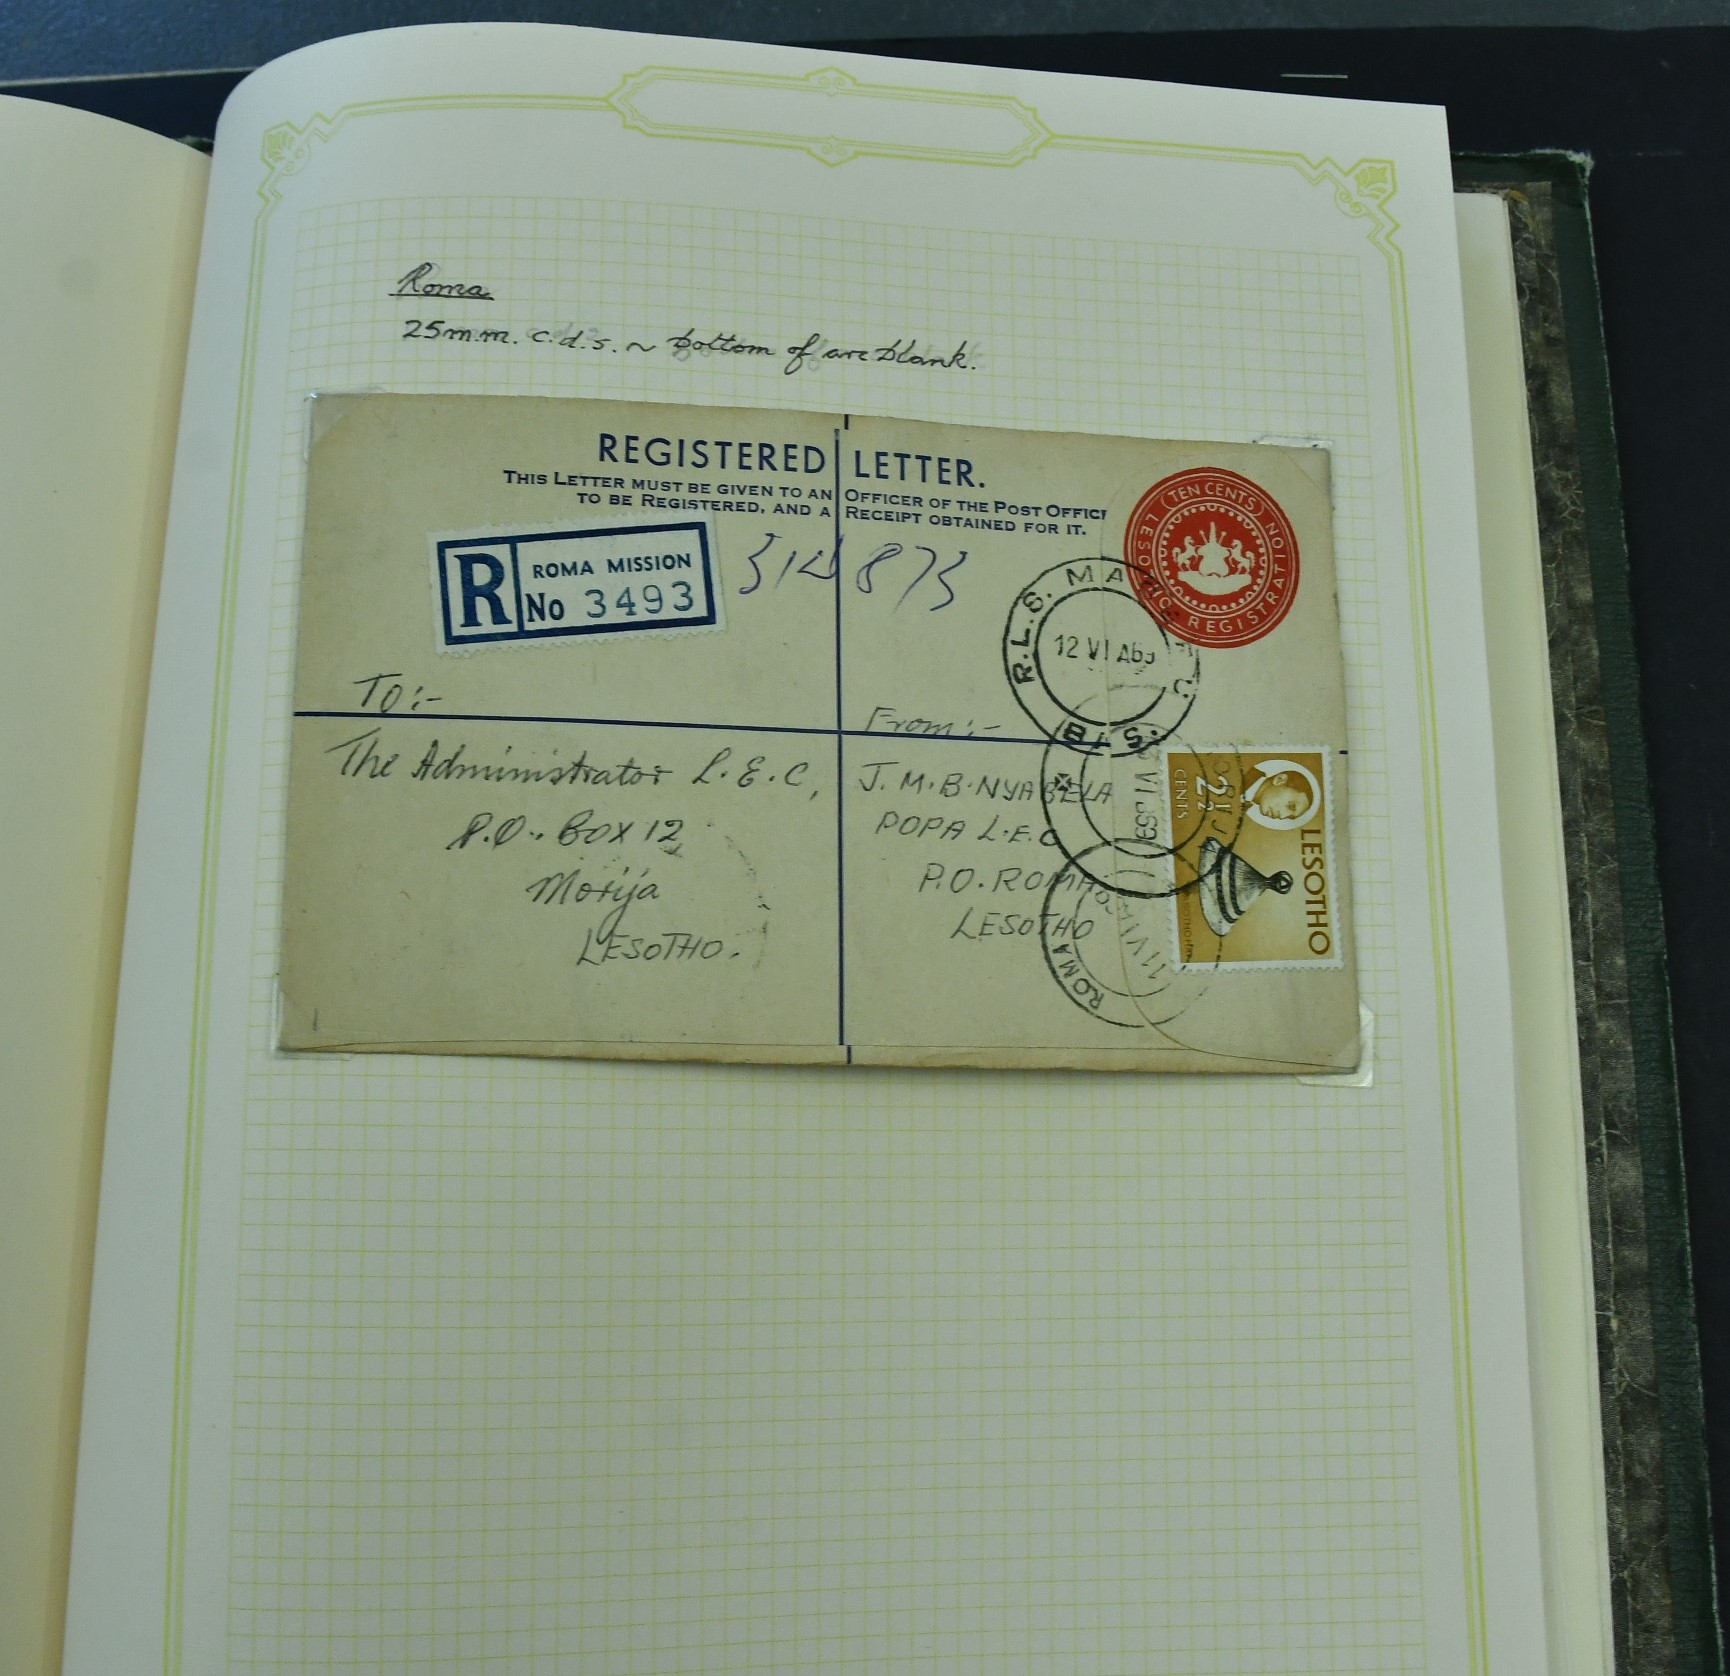 Roma
25m.m. c.d.s. ~ bottom of arc blank.
REGISTERED LETTER.
THIS LETTER MUST BE GIVEN TO AN OFFICER OF THE POST OFFIC
TO BE REGISTERED, AND A RECEIPT OBTAINED FOR IT.
LESOTHO (TEN CENTS) REGISTRATION
R
ROMA MISSION
No 3493
R.L.S. MA
12 VI
To:-
The Administrator L.E.C,
P.O. Box 12
Morija
LESOTHO.
From:-
J.M.B. NYABELA
POPA L.E.C
P.O. ROMA.
LESOTHO
2½
CENTS
LESOTHO
ROMA
11 VI